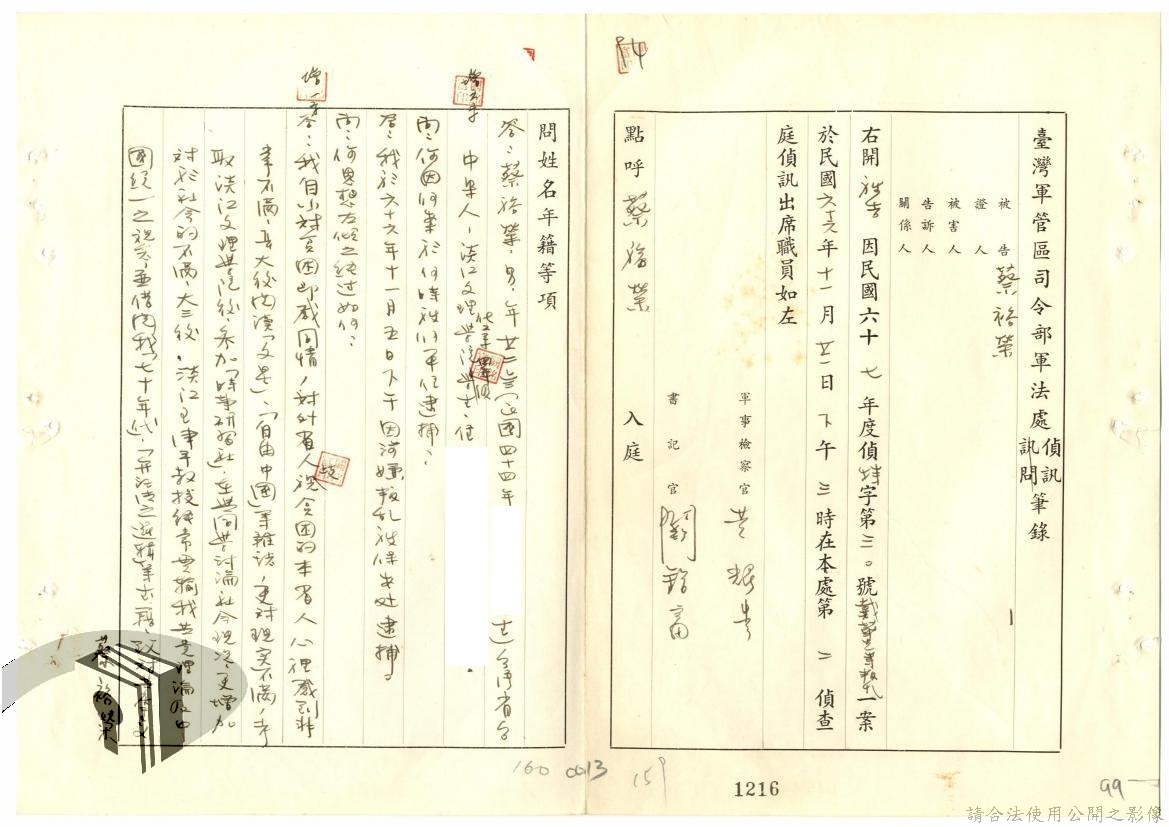 臺灣軍管區司令部軍法處偵訊訊問筆錄
被告 蔡裕榮
證人
被害人
告訴人
關係人
右開被告因民國六十七年度偵特字第三〇號戴華光等叛亂一案
於民國六十六年十一月廿一日下午三時在本處第二偵查
庭偵訊出席職員如左
軍事檢察官
書記官
點呼蔡裕榮入庭
問姓名年籍等項
答:蔡裕榮,男,年廿二歲(民國四十四年 生)台灣省台
中縣人,淡江文理學院學生,住
問:何因何案於何時被何單位逮捕?
答:我於六十六年十一月五日下午因涉嫌叛乱被保安處逮捕。
問:何思想左傾之經過如何?
答:我自小對貧困即感同情,對外省人視貧困的本省人心裡感到非
常不滿,在大後閱讀「文星」、「自由中國」等雜誌,更對現實不滿,考
取淡江文理學院後,參加「時事研習社」,在與同學討論社会現況,更增加
對於社会的不滿,大三後,淡江王津平教授經常灌輸我共產理論及中
國統一之
增一字
蔡裕榮
160 0013
159
1216
99
請合法使用公開之影像